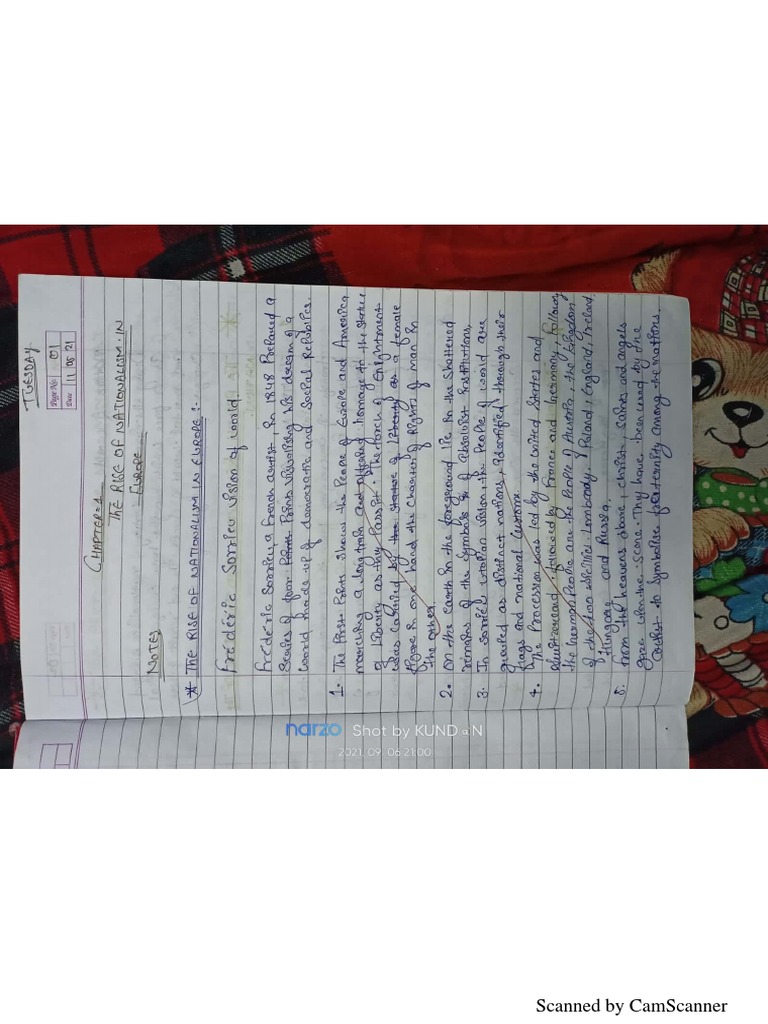 TUESDAY
Page No. 01
Date 11 05 21
CHAPTER-1
THE RISE OF NATIONALISM IN
EUROPE
NOTES
* THE RISE OF NATIONALISM IN EUROPE:-
Frederic Sorrieu vision of world.
Frederic Sorrieu, a French artist, in 1848 Prepared a
Series of four Prints visualising his dream of a
world made up of democratic and Social Republics.
1. The first Prints shows the People of Europe and America
marching a long train and offered homage to the Statue
of Liberty as they Pass it. The torch of Enlightment
was carried by the statue of liberty as a female
figure in one hand the Charter of Rights of man in
the other.
2. On the earth in the foreground lie in the Shattered
remains of the Symbols is of Absolutist institutions.
3. In sorrie's utopian vision, the People of world are
grouped as distinct nations, identified through their
flags and national Custom.
4. The Procession was led by the United States and
Switzerland, followed by France and Germany, follow
the German People are the People of Austria, the Kingdom
of the two sicilies, Lombardy, Poland, England, Ireland,
Hungary and Russia.
5. from the heavens above, christ, saints and angels
gaze upon the scene. They have been used by the
artist to Symbolise fraternity among the nations.
narzo Shot by KUNDAN
2021.09.06 21:00
Scanned by CamScanner